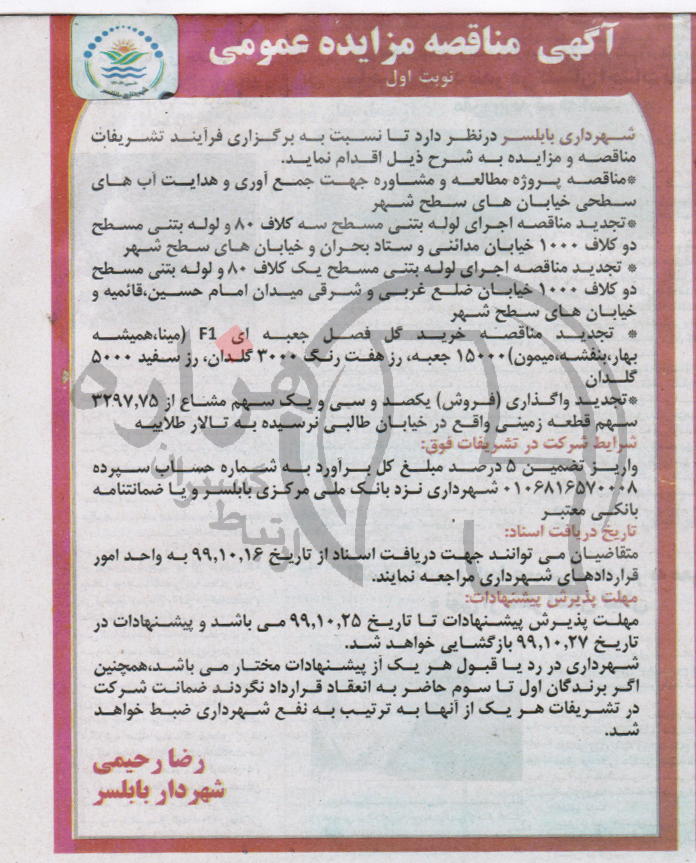 آگهی مناقصه مزایده عمومی
نوبت اول
شهرداری بابلسر
شهرداری بابلسر درنظر دارد تا نسبت به برگزاری فرآیند تشریفات
مناقصه و مزایده به شرح ذیل اقدام نماید.
*مناقصه پروژه مطالعه و مشاوره جهت جمع آوری و هدایت آب های
سطحی خیابان های سطح شهر
*تجدید مناقصه اجرای لوله بتنی مسطح سه کلاف ۸۰ و لوله بتنی مسطح
دو کلاف ۱۰۰۰ خیابان مدائنی و ستاد بحران و خیابان های سطح شهر
* تجدید مناقصه اجرای لوله بتنی مسطح یک کلاف ۸۰ و لوله بتنی مسطح
دو کلاف ۱۰۰۰ خیابان ضلع غربی و شرقی میدان امام حسین،قائمیه و
خیابان های سطح شهر
* تجدید مناقصه خرید گل فصل جعبه ای F1 (مینا،همیشه
بهار،بنفشه،میمون)۱۵۰۰۰ جعبه، رز هفت رنگ ۳۰۰۰ گلدان، رز سفید ۵۰۰۰
گلدان
*تجدید واگذاری (فروش) یکصد و سی و یک سهم مشاع از ۳۲۹۷,۷۵
سهم قطعه زمینی واقع در خیابان طالبی نرسیده به تالار طلاییه
شرایط شرکت در تشریفات فوق:
واریز تضمین ۵ درصد مبلغ کل برآورد به شماره حساب/سپرده
۰۱۰۶۸۱۶۵۷۰۰۰۸ شهرداری نزد بانک ملی مرکزی بابلسر و یا ضمانتنامه
بانکی معتبر
تاریخ دریافت اسناد:
متقاضیان می توانند جهت دریافت اسناد از تاریخ ۹۹,۱۰,۱۶ به واحد امور
قراردادهای شهرداری مراجعه نمایند.
مهلت پذیرش پیشنهادات:
مهلت پذیرش پیشنهادات تا تاریخ ۹۹,۱۰,۲۵ می باشد و پیشنهادات در
تاریخ ۹۹,۱۰,۲۷ بازگشایی خواهد شد.
شهرداری در رد یا قبول هر یک از پیشنهادات مختار می باشد،همچنین
اگر برندگان اول تا سوم حاضر به انعقاد قرارداد نگردند ضمانت شرکت
در تشریفات هر یک از آنها به ترتیب به نفع شهرداری ضبط خواهد
شد.
رضا رحیمی
شهردار بابلسر
هزاره
گستران
ارتباط